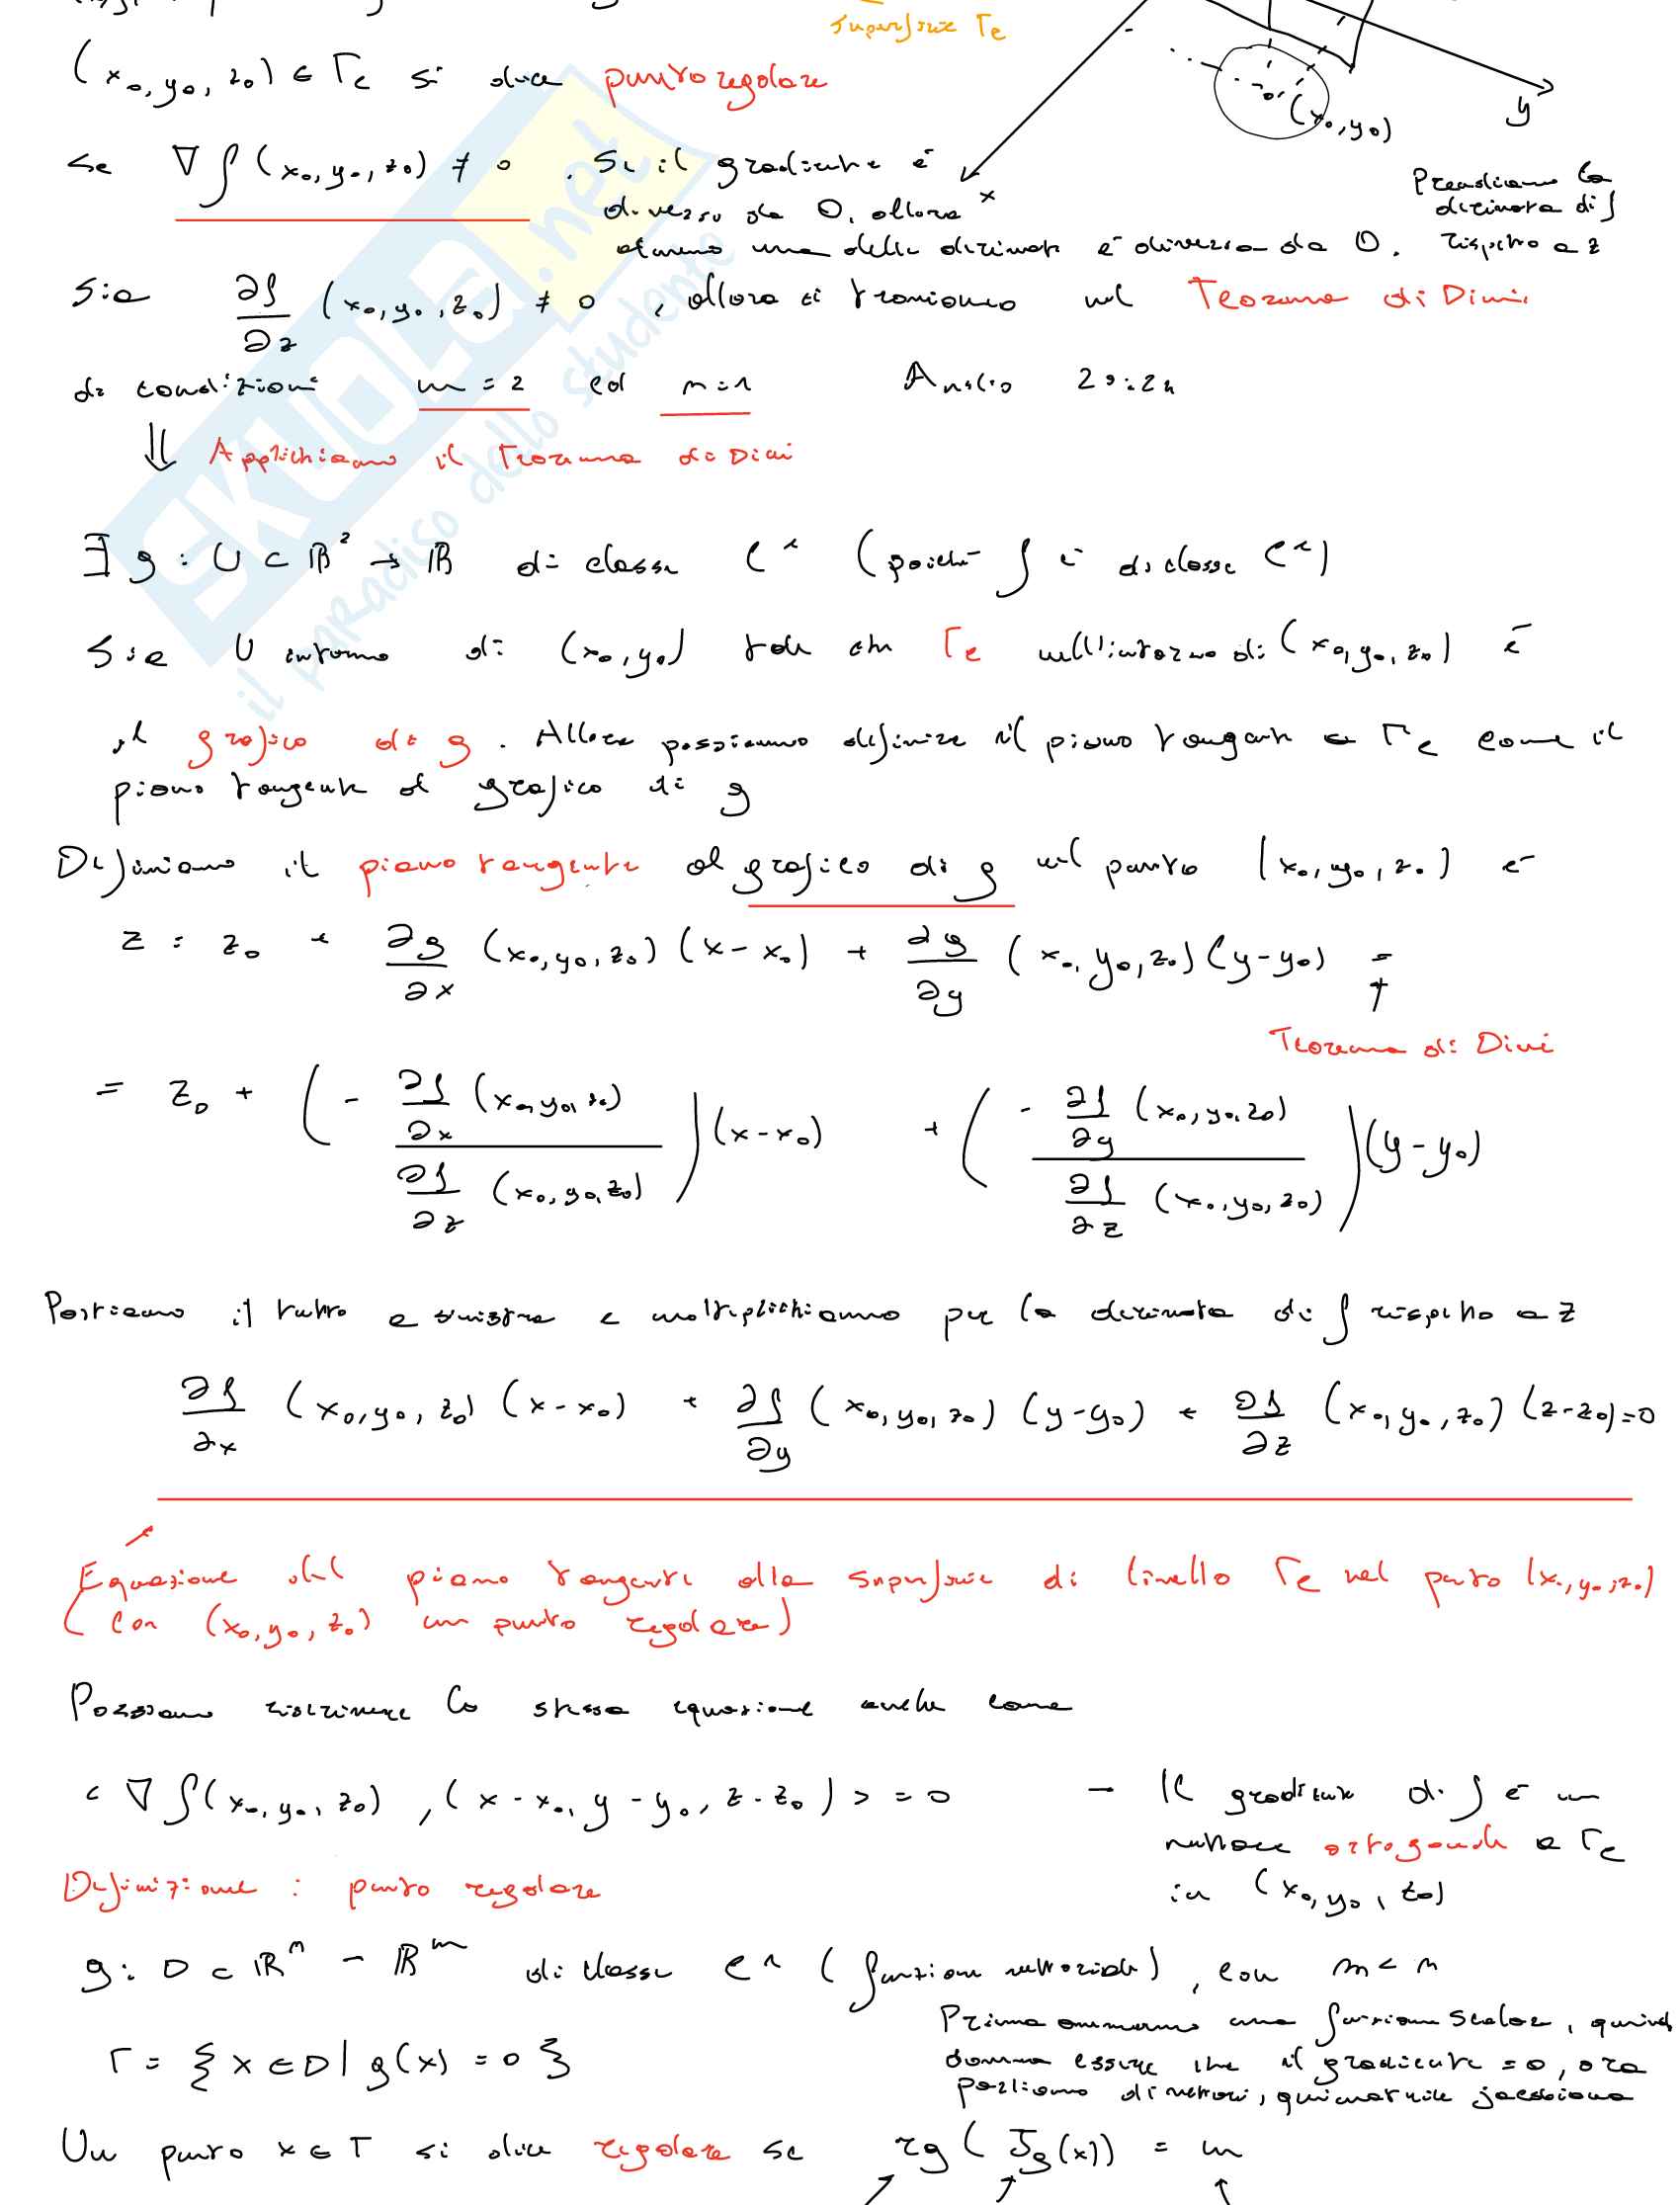 superficie Γc
(x₀, y₀, z₀) ∈ Γc si dice punto regolare
y
(x₀, y₀)
se ∇f (x₀, y₀, z₀) ≠ 0 . Se il gradiente è
x
diverso da 0, allora
almeno una delle derivate è diversa da 0.
Prendiamo la
derivata di f
rispetto a z
Sia ∂f/∂z (x₀, y₀, z₀) ≠ 0 , allora ci troviamo nel Teorema di Dini
di condizioni m = 2 ed n = 1
⇓ Applichiamo il Teorema di Dini
∃ g : U ⊂ ℝ² → ℝ di classe C¹ (poiché f è di classe C¹)
Sia U intorno di (x₀, y₀) tale che Γc nell'intorno di (x₀, y₀, z₀) è
il grafico di g . Allora possiamo definire il piano tangente a Γc come il
piano tangente al grafico di g
Definiamo il piano tangente al grafico di g nel punto (x₀, y₀, z₀) è
z = z₀ + ∂g/∂x (x₀, y₀, z₀) (x - x₀) + ∂g/∂y (x₀, y₀, z₀) (y - y₀) =
↑
Teorema di Dini
= z₀ + ( - ∂f/∂x (x₀, y₀, z₀) / ∂f/∂z (x₀, y₀, z₀) ) (x - x₀) + ( - ∂f/∂y (x₀, y₀, z₀) / ∂f/∂z (x₀, y₀, z₀) ) (y - y₀)
Portiamo il tutto a sinistra e moltiplichiamo per la derivata di f rispetto a z
∂f/∂x (x₀, y₀, z₀) (x - x₀) + ∂f/∂y (x₀, y₀, z₀) (y - y₀) + ∂f/∂z (x₀, y₀, z₀) (z - z₀) = 0
Equazione del piano tangente alla superficie di livello Γc nel punto (x₀, y₀, z₀)
( con (x₀, y₀, z₀) un punto regolare)
Possiamo riscrivere la stessa equazione anche come
< ∇f(x₀, y₀, z₀) , (x - x₀, y - y₀, z - z₀) > = 0
→ Il gradiente di f è un
vettore ortogonale a Γc
in (x₀, y₀, z₀)
Definizione : punto regolare
g : D ⊂ ℝⁿ → ℝᵐ di classe C¹ (funzione vettoriale) , con m < n
Prima avevamo una funzione scalare, quindi
doveva essere che il gradiente = 0, ora
parliamo di vettori, quindi matrice jacobiana
Γ = { x ∈ D | g(x) = 0 }
Un punto x ∈ Γ si dice regolare se rg ( Jg(x)) = m
SKUOLA.net
il paradiso dello studente